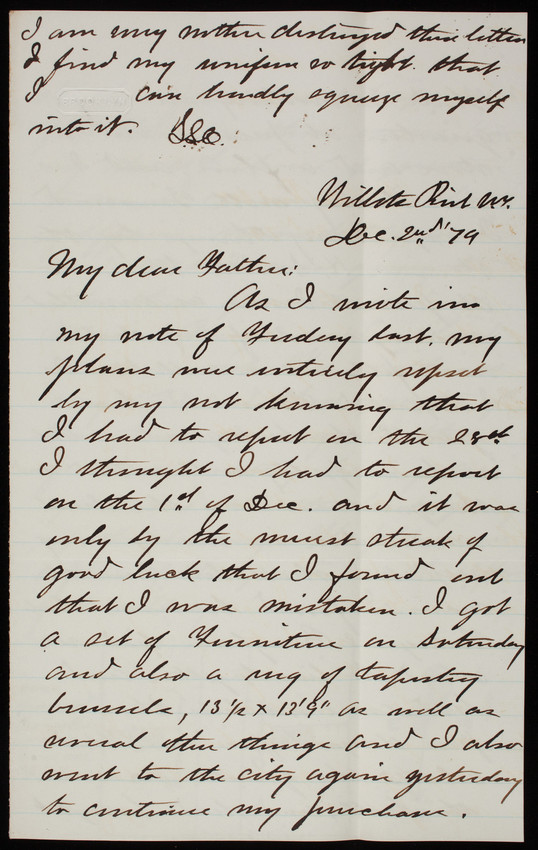 I am very rather destroyed these letters
I find my uniform so tight that
I can hardly squeeze myself
into it. 
Willets Point N.Y.
Dec. 2nd '79
My dear Father:
As I wrote in
my note of Friday last, my
plans were entirely upset
by my not knowing that
I had to report on the 28th
I thought I had to report
on the 1st of Dec. and it was
only by the merest streak of
good luck that I found out
that I was mistaken. I got
a set of Furniture on Saturday
and also a rug of tapestry
brussels, 13 1/2 x 13'9" as well as
several other things and I also
went to the city again yesterday
to continue my purchases.